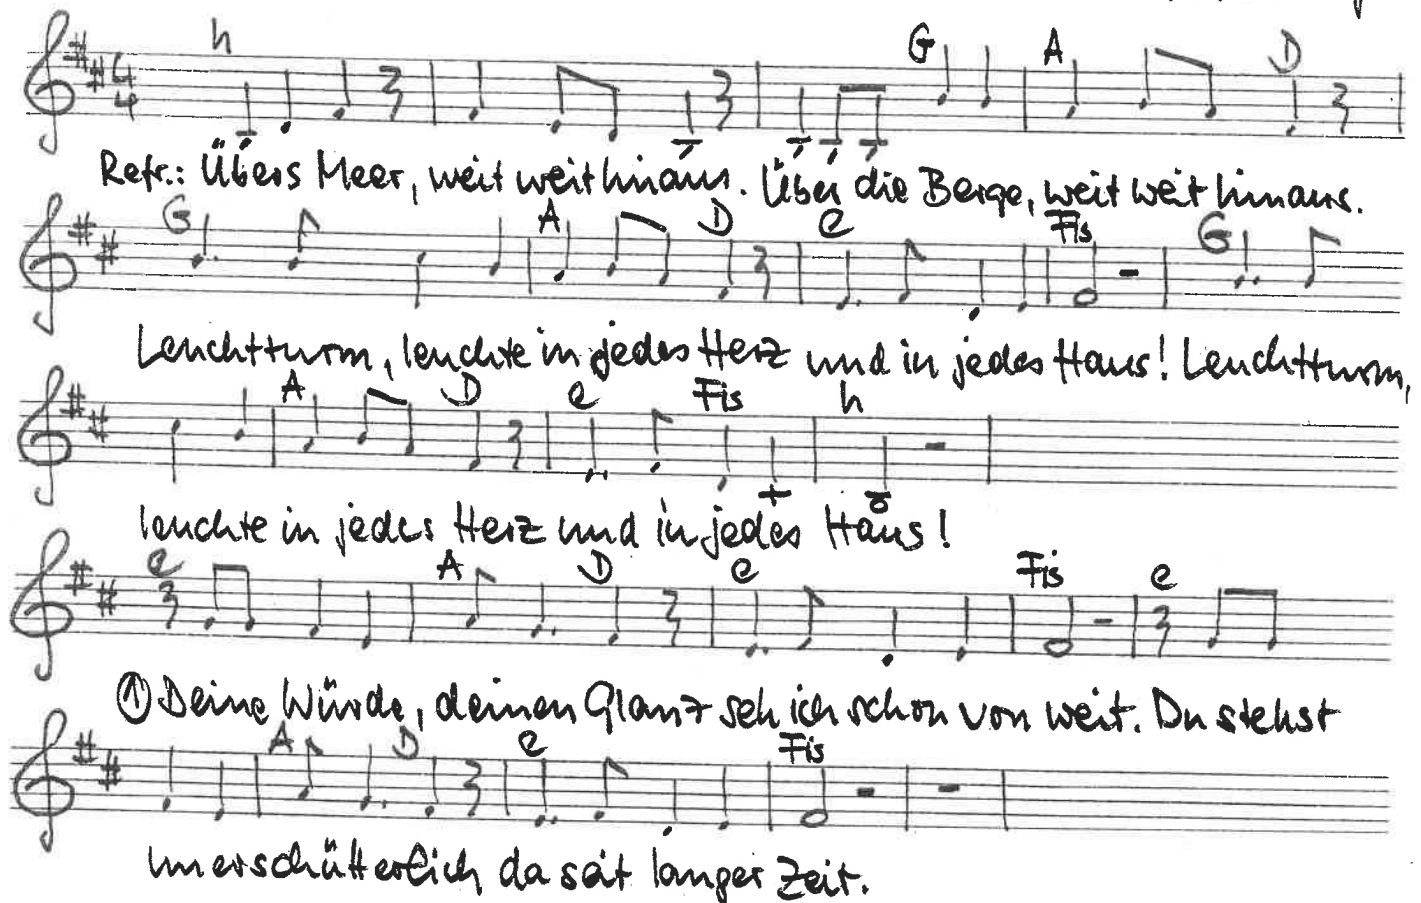 h G A D
4
4
Refr.: Übers Meer, weit weit hinaus. Über die Berge, weit weit hinaus.
G A D e Fis G
Leuchtturm, leuchte in jedes Herz und in jedes Haus! Leuchtturm,
A D e Fis h
leuchte in jedes Herz und in jedes Haus!
e A D e Fis e
① Deine Würde, deinen Glanz seh ich schon von weit. Du stehst
A D e Fis
unerschütterlich da seit langer Zeit.